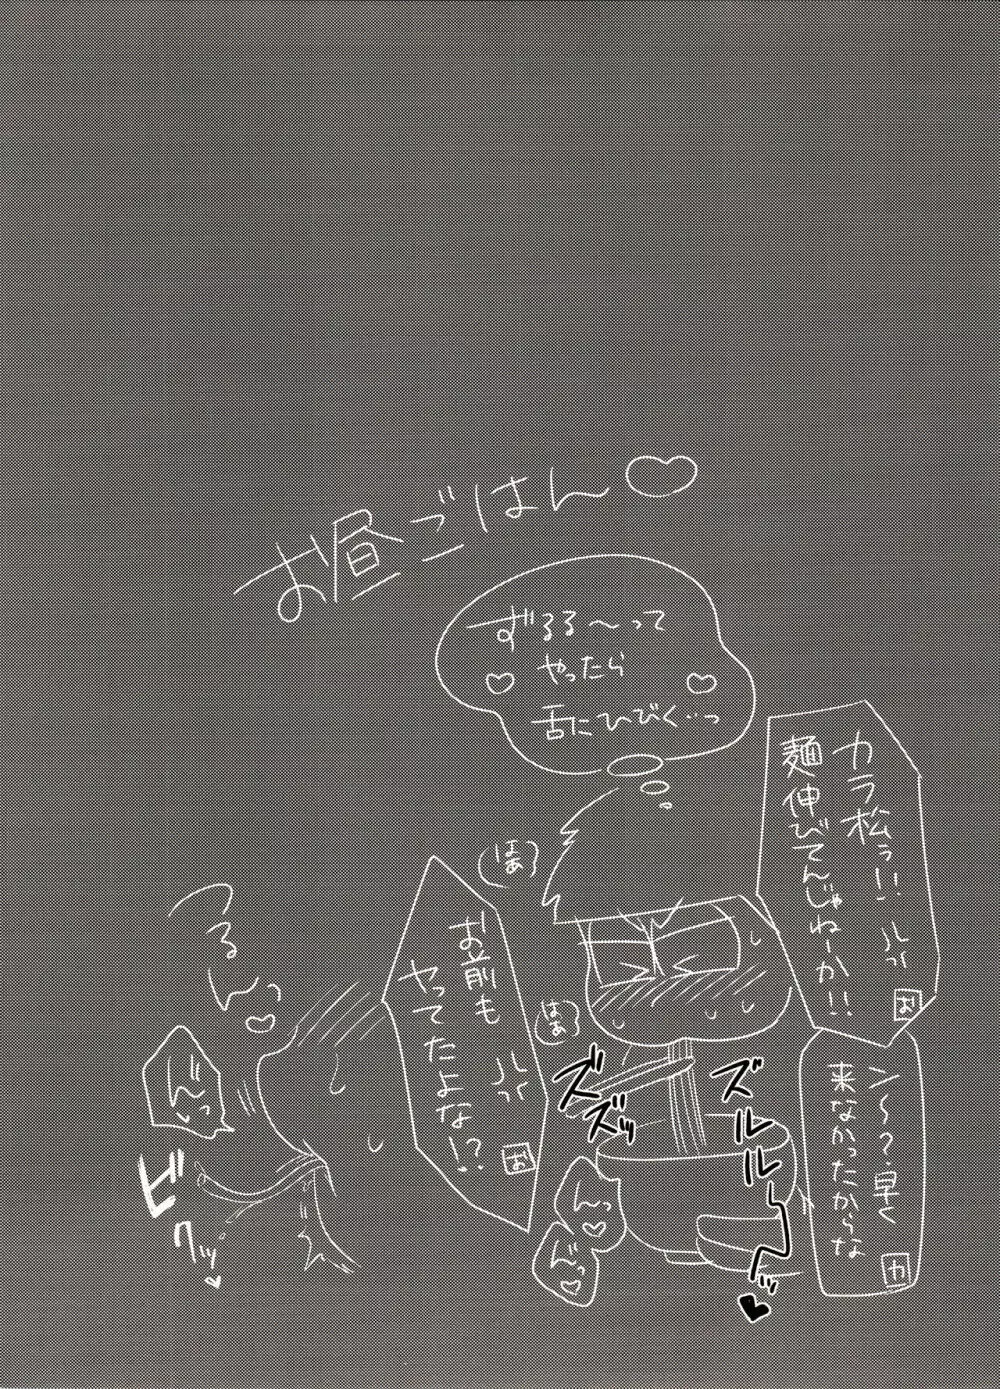 お昼ごはん♡
ずるる〜って
やったら
舌にひびく…っ
カラ松ぅ!!
麺伸びてんじゃねーか!!
お
ン〜?早く
来なかったからな
カ
はあっ
はあっ
お前も
やってたよな!?
お
ズズッ
ズルルル〜ッ♥
んっ♡
んっ♡
つるんっ♡
んっ
ビクッ♥